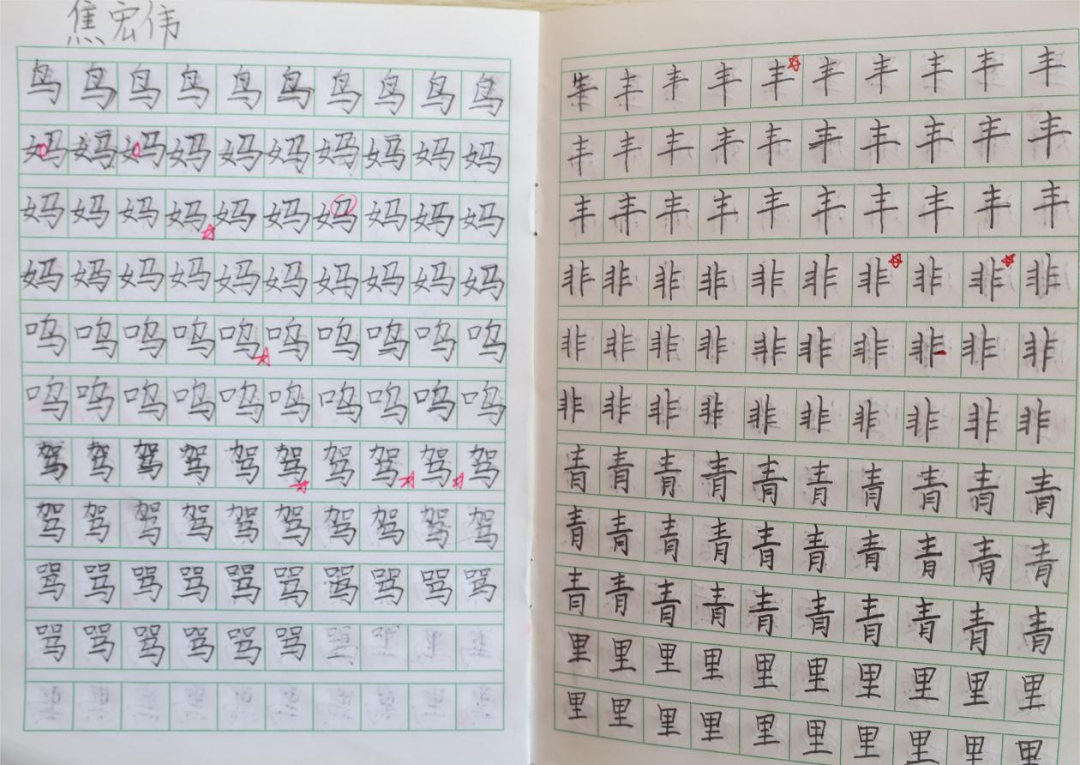 焦宏伟
鸟鸟鸟鸟鸟鸟鸟鸟鸟鸟
妈妈妈妈妈妈妈妈妈妈
妈妈妈妈妈妈妈妈妈妈
妈妈妈妈妈妈妈妈妈妈
呜呜呜呜呜呜呜呜呜呜
呜呜呜呜呜呜呜呜呜呜
驾驾驾驾驾驾驾驾驾驾
驾驾驾驾驾驾驾驾驾驾
骂骂骂骂骂骂骂骂骂骂
骂骂骂骂骂骂
丰丰丰丰丰丰丰丰丰
丰丰丰丰丰丰丰丰丰丰
丰丰丰丰丰丰丰丰丰丰
非非非非非非非非非非
非非非非非非非非非非
非非非非非非非非非非
青青青青青青青青青青
青青青青青青青青青青
青青青青青青青青青青
里里里里里里里里里里
里里里里里里里里里里